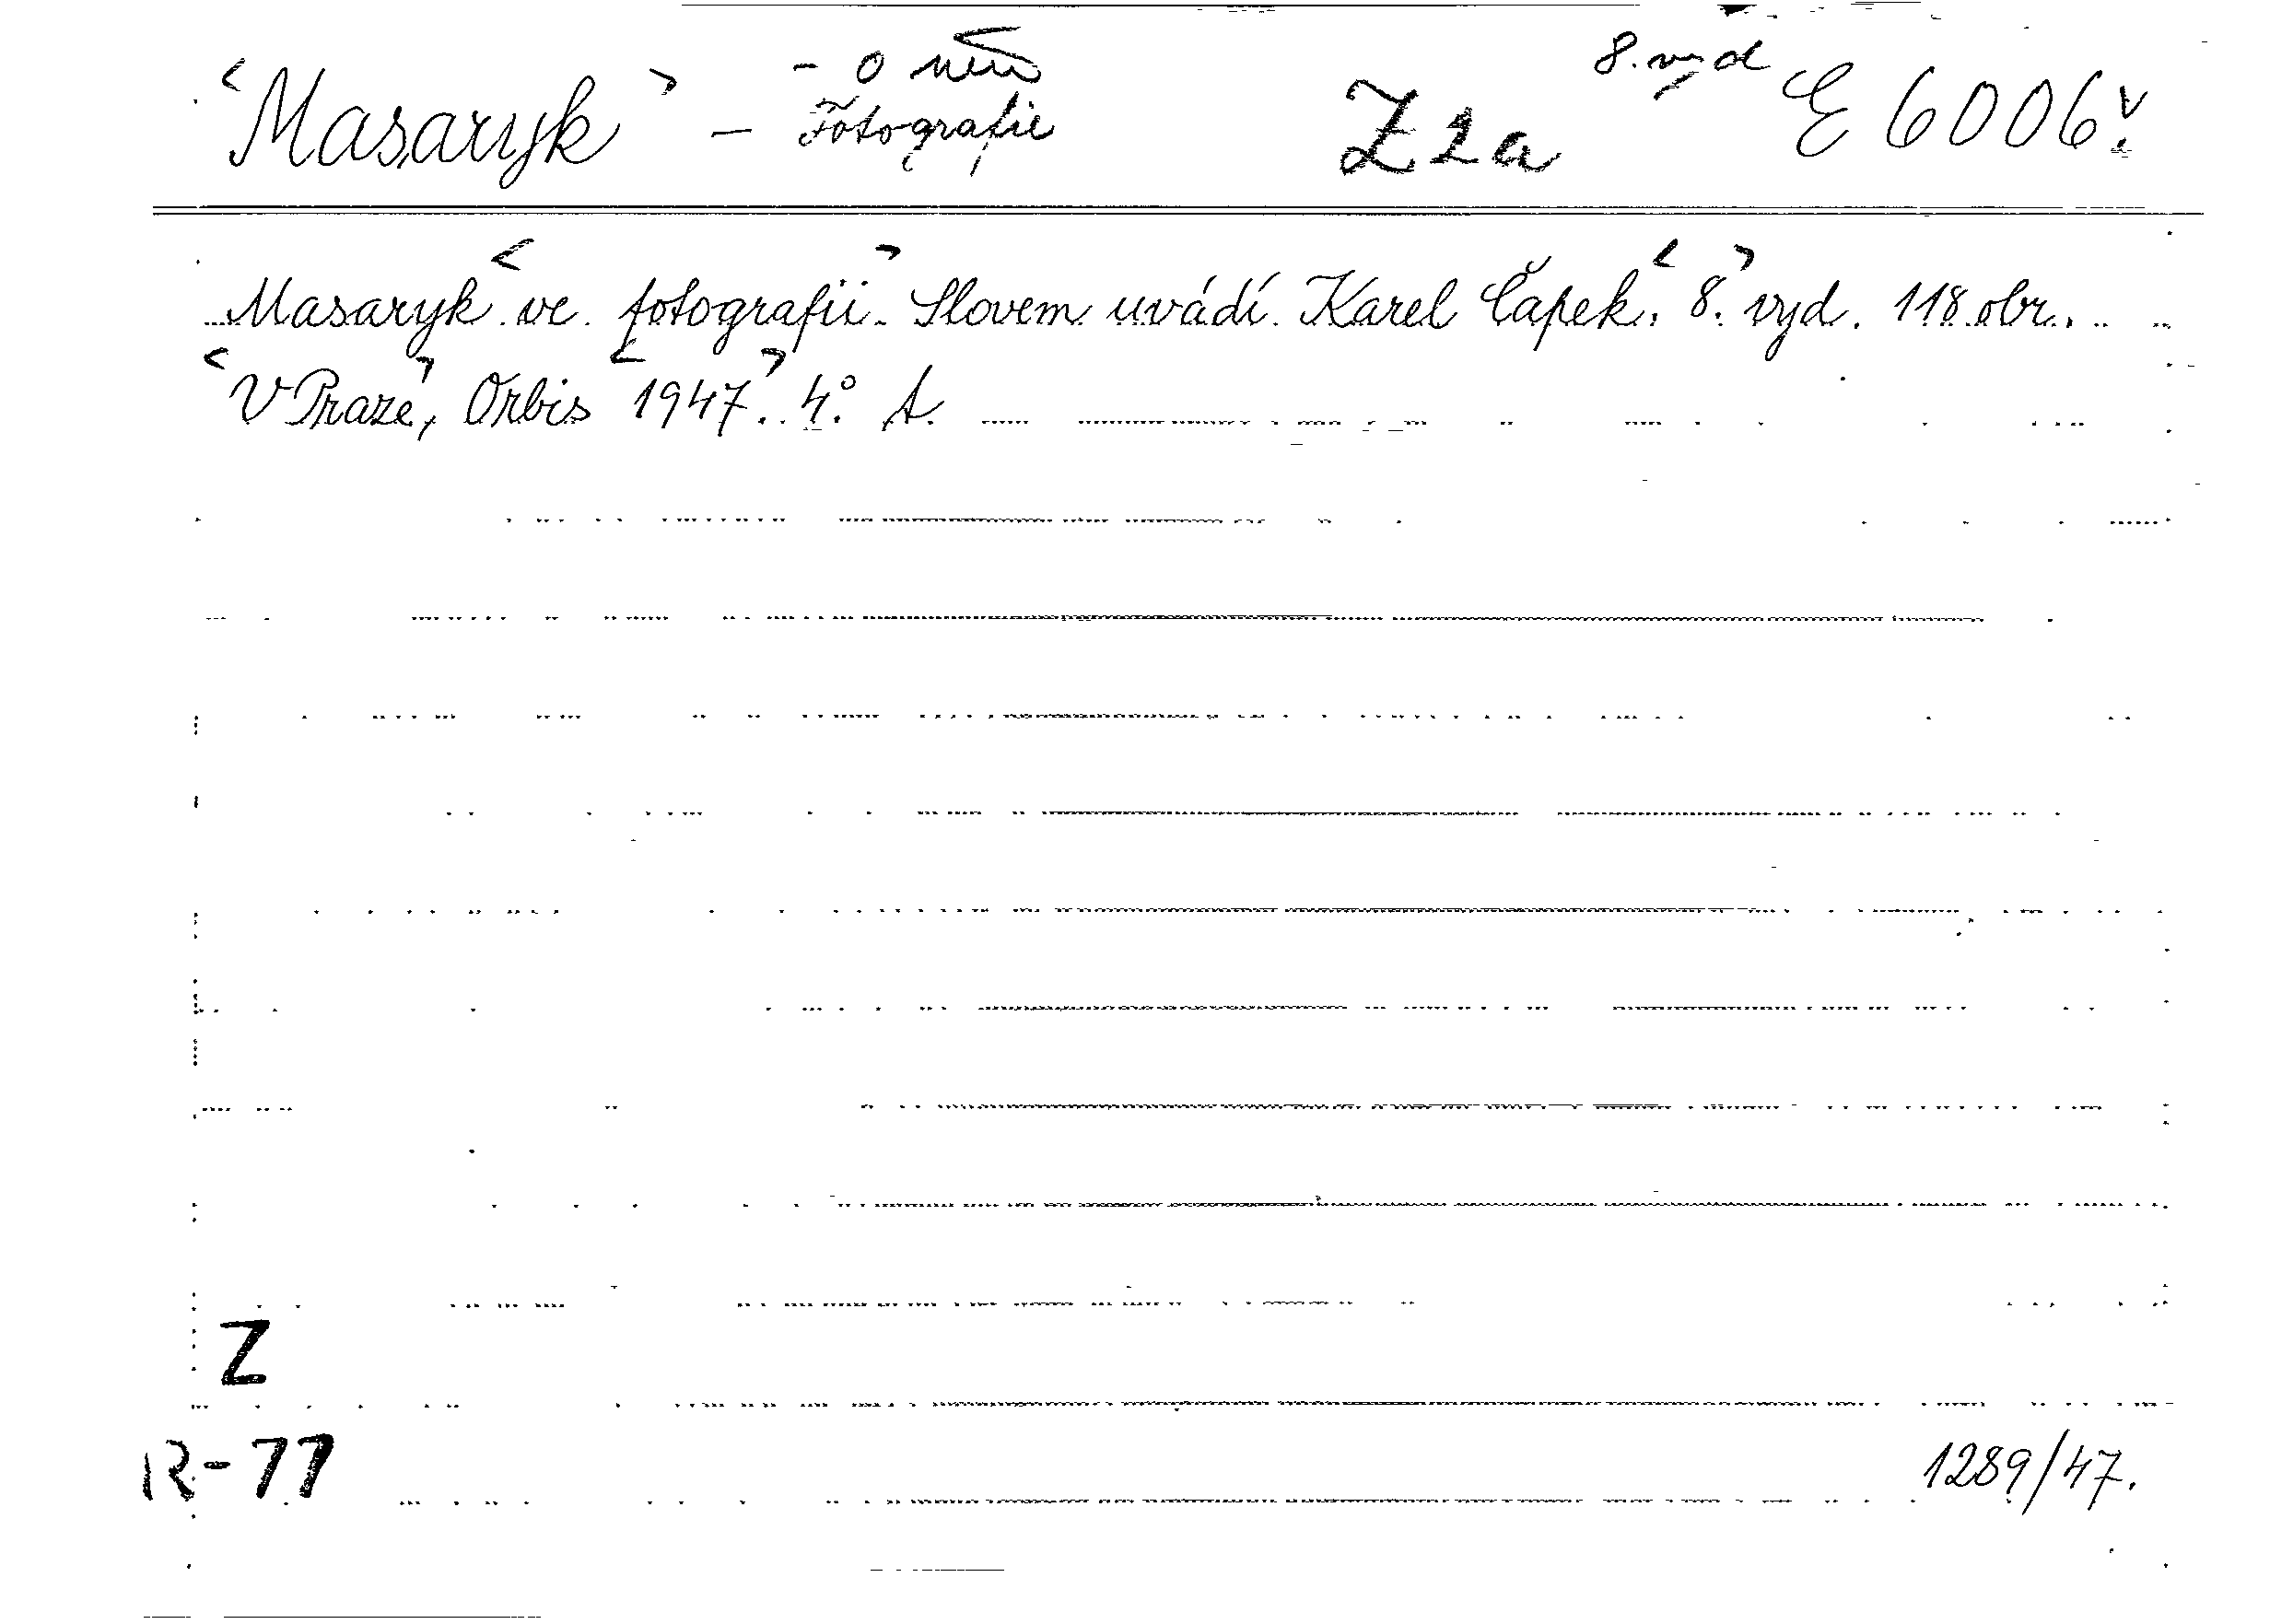 - o něm 8. vyd
<Masaryk> - Fotografie Z2a E 6006.
Masaryk <ve fotografii>. Slovem uvádí Karel Čapek. <8.> vyd. 118 obr.
<V Praze>, Orbis <1947>. 4° A.
Z
R-77 1289/47.